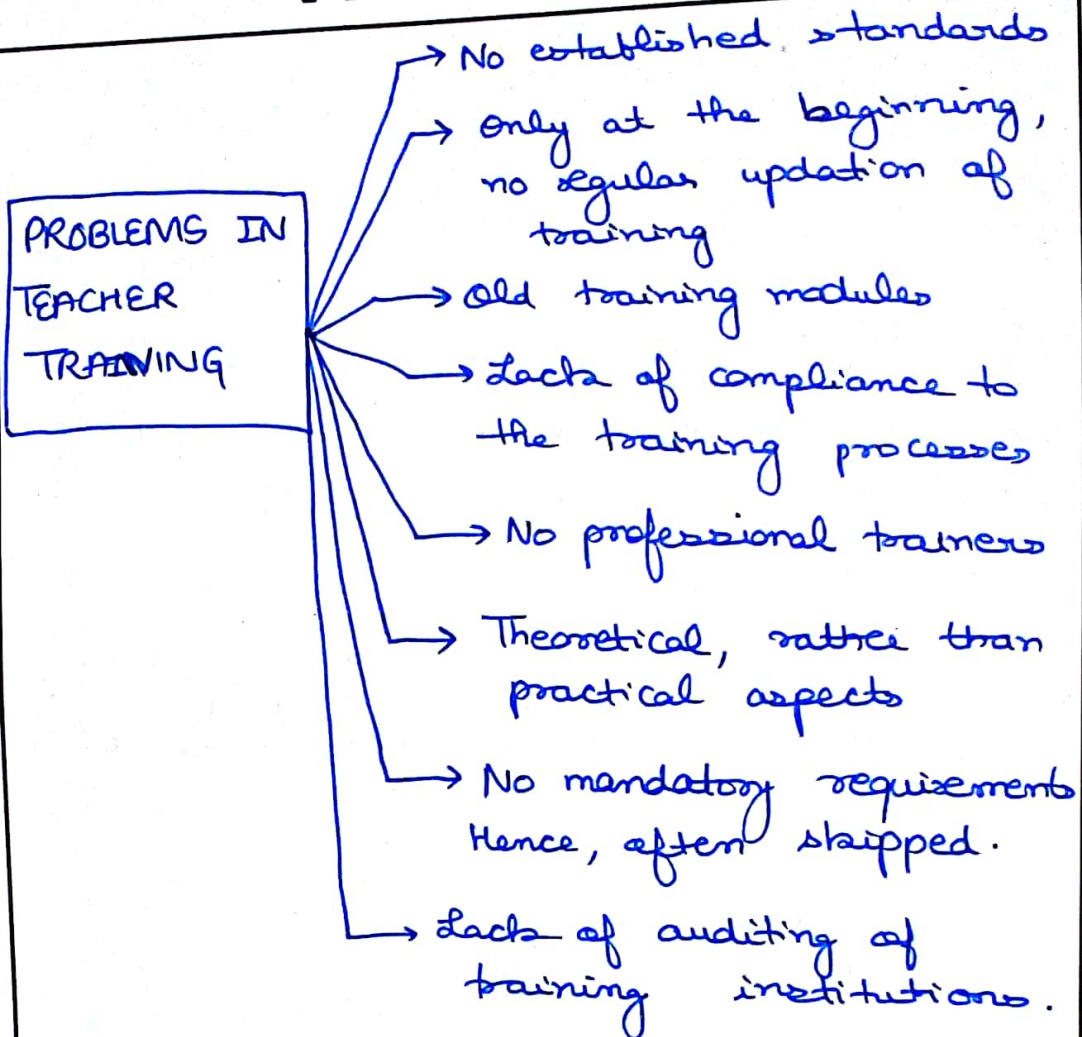 PROBLEMS IN
TEACHER
TRAINING
No established standards
Only at the beginning,
no regular updation of
training
Old training modules
Lack of compliance to
the training processes
No professional trainers
Theoretical, rather than
practical aspects
No mandatory requirements
Hence, often skipped.
Lack of auditing of
training institutions.